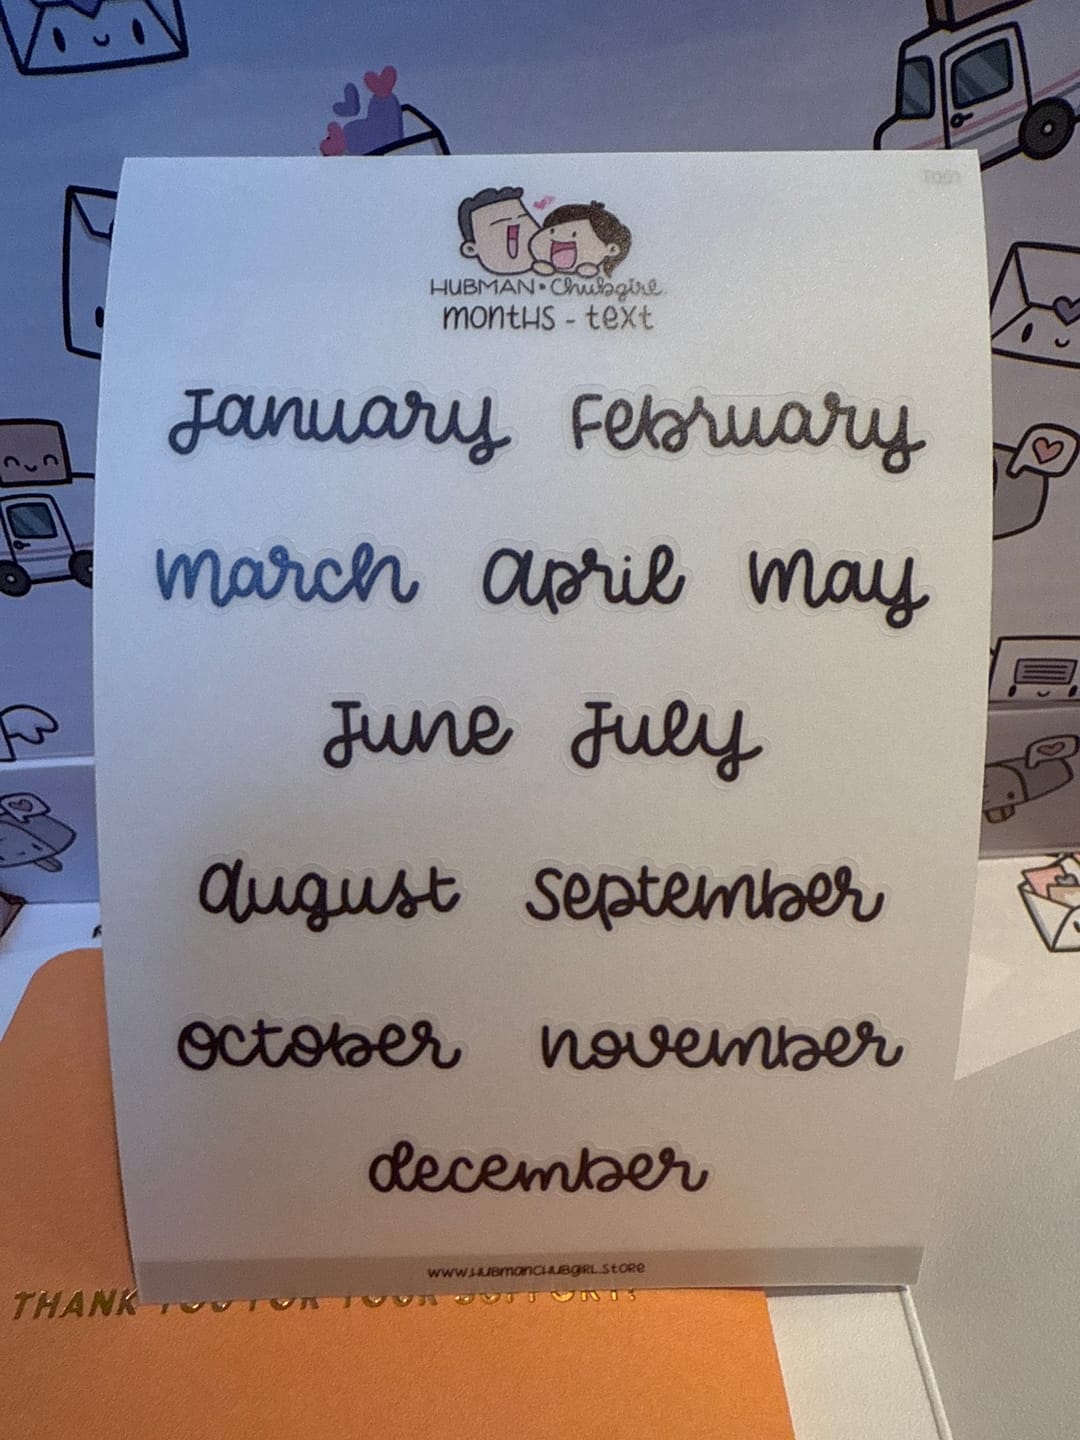 HUBMAN • Chubgirl
months - text
January February
march april may
June July
august september
october november
december
www.HUBMANCHUBGIRL.STORE
THANK YOU FOR YOUR SUPPORT!